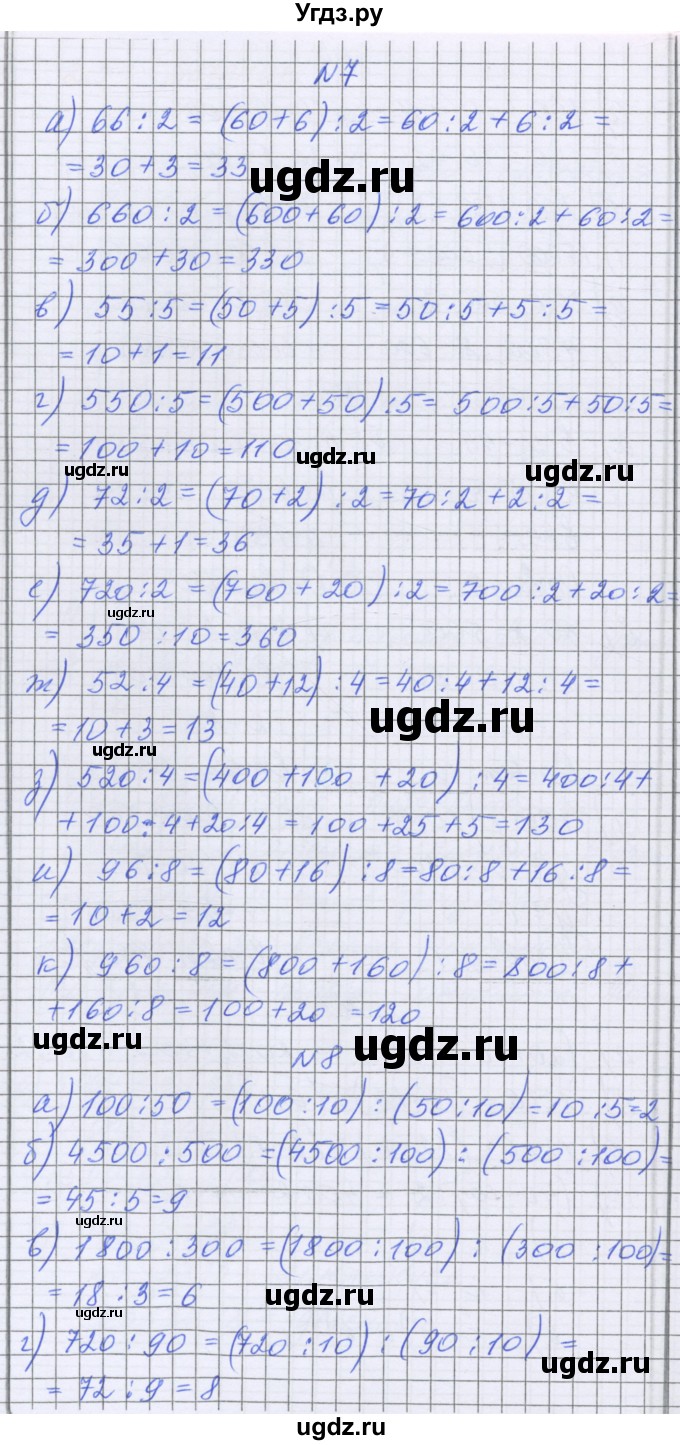 Угдз.ру
№7
а) 66:2 = (60+6):2 = 60:2+6:2 =
= 30+3 = 33
ugdz.ru
б) 660:2 = (600+60):2 = 600:2+60:2 =
= 300+30 = 330
в) 55:5 = (50+5):5 = 50:5+5:5 =
= 10+1 = 11
г) 550:5 = (500+50):5 = 500:5+50:5 =
= 100+10 = 110
ugdz.ru ugdz.ru ugdz.ru
д) 72:2 = (70+2):2 = 70:2+2:2 =
= 35+1 = 36
е) 720:2 = (700+20):2 = 700:2+20:2 =
ugdz.ru
= 350:10 = 360
ж) 52:4 = (40+12):4 = 40:4+12:4 =
ugdz.ru
= 10+3 = 13
ugdz.ru
з) 520:4 = (400+100+20):4 = 400:4+
+100:4+20:4 = 100+25+5 = 130
и) 96:8 = (80+16):8 = 80:8+16:8 =
= 10+2 = 12
к) 960:8 = (800+160):8 = 800:8+
+160:8 = 100+20 = 120
ugdz.ru ugdz.ru
№8
а) 100:50 = (100:10):(50:10) = 10:5 = 2
б) 4500:500 = (4500:100):(500:100) =
= 45:5 = 9
ugdz.ru
в) 1800:300 = (1800:100):(300:100) =
= 18:3 = 6
ugdz.ru ugdz.ru
г) 720:90 = (720:10):(90:10) =
ugdz.ru
= 72:9 = 8
ugdz.ru